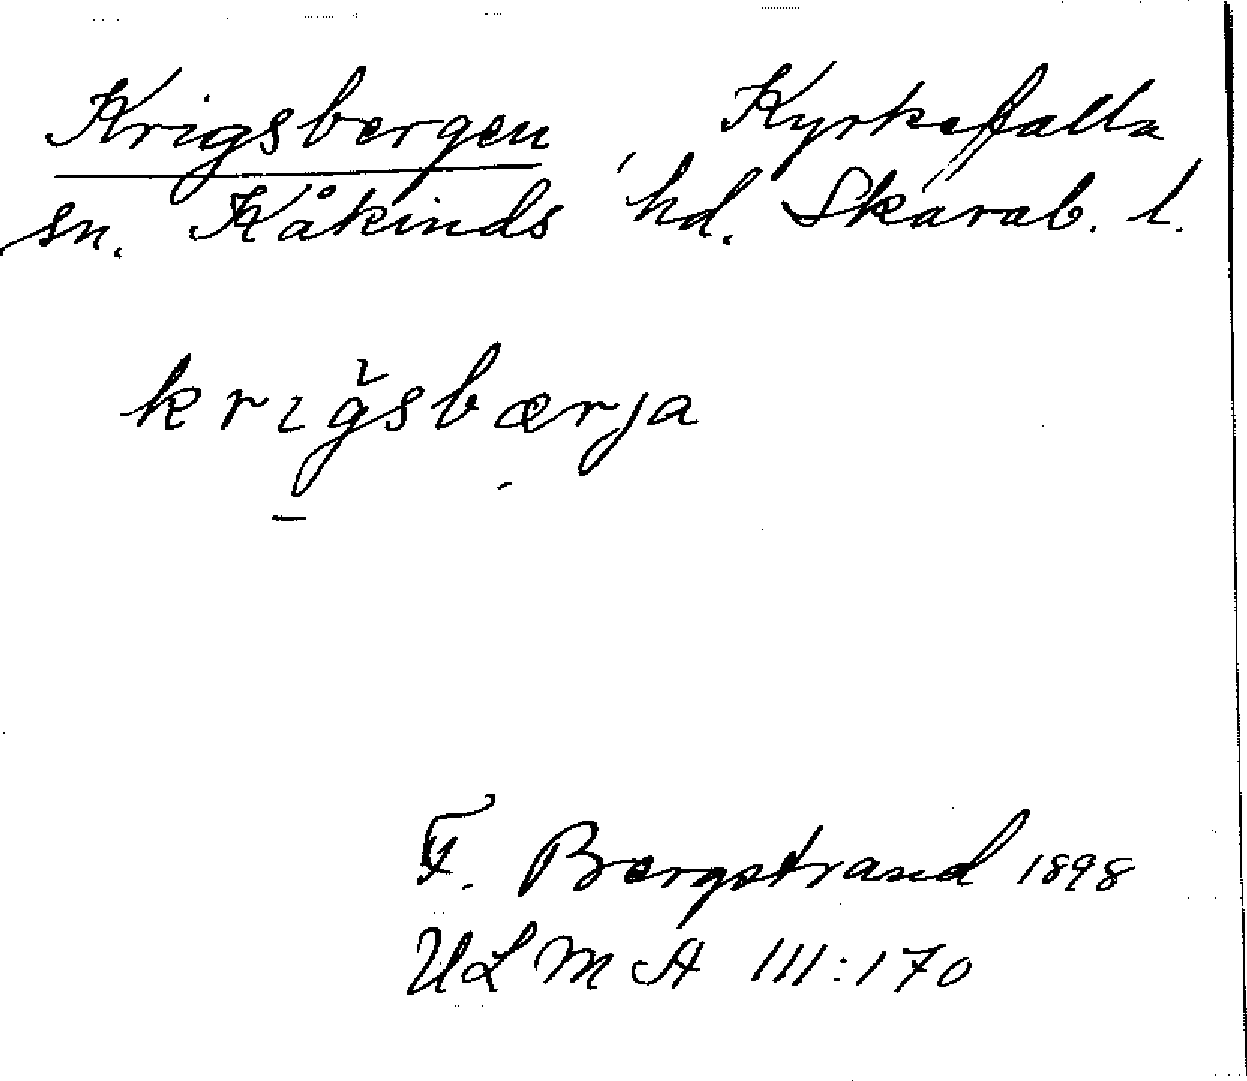 Krigsbergen Kyrkefalla
sn. Kåkinds hd. Skarab. l.
krığsbærja
F. Bergstrand 1898
ULMA III:170